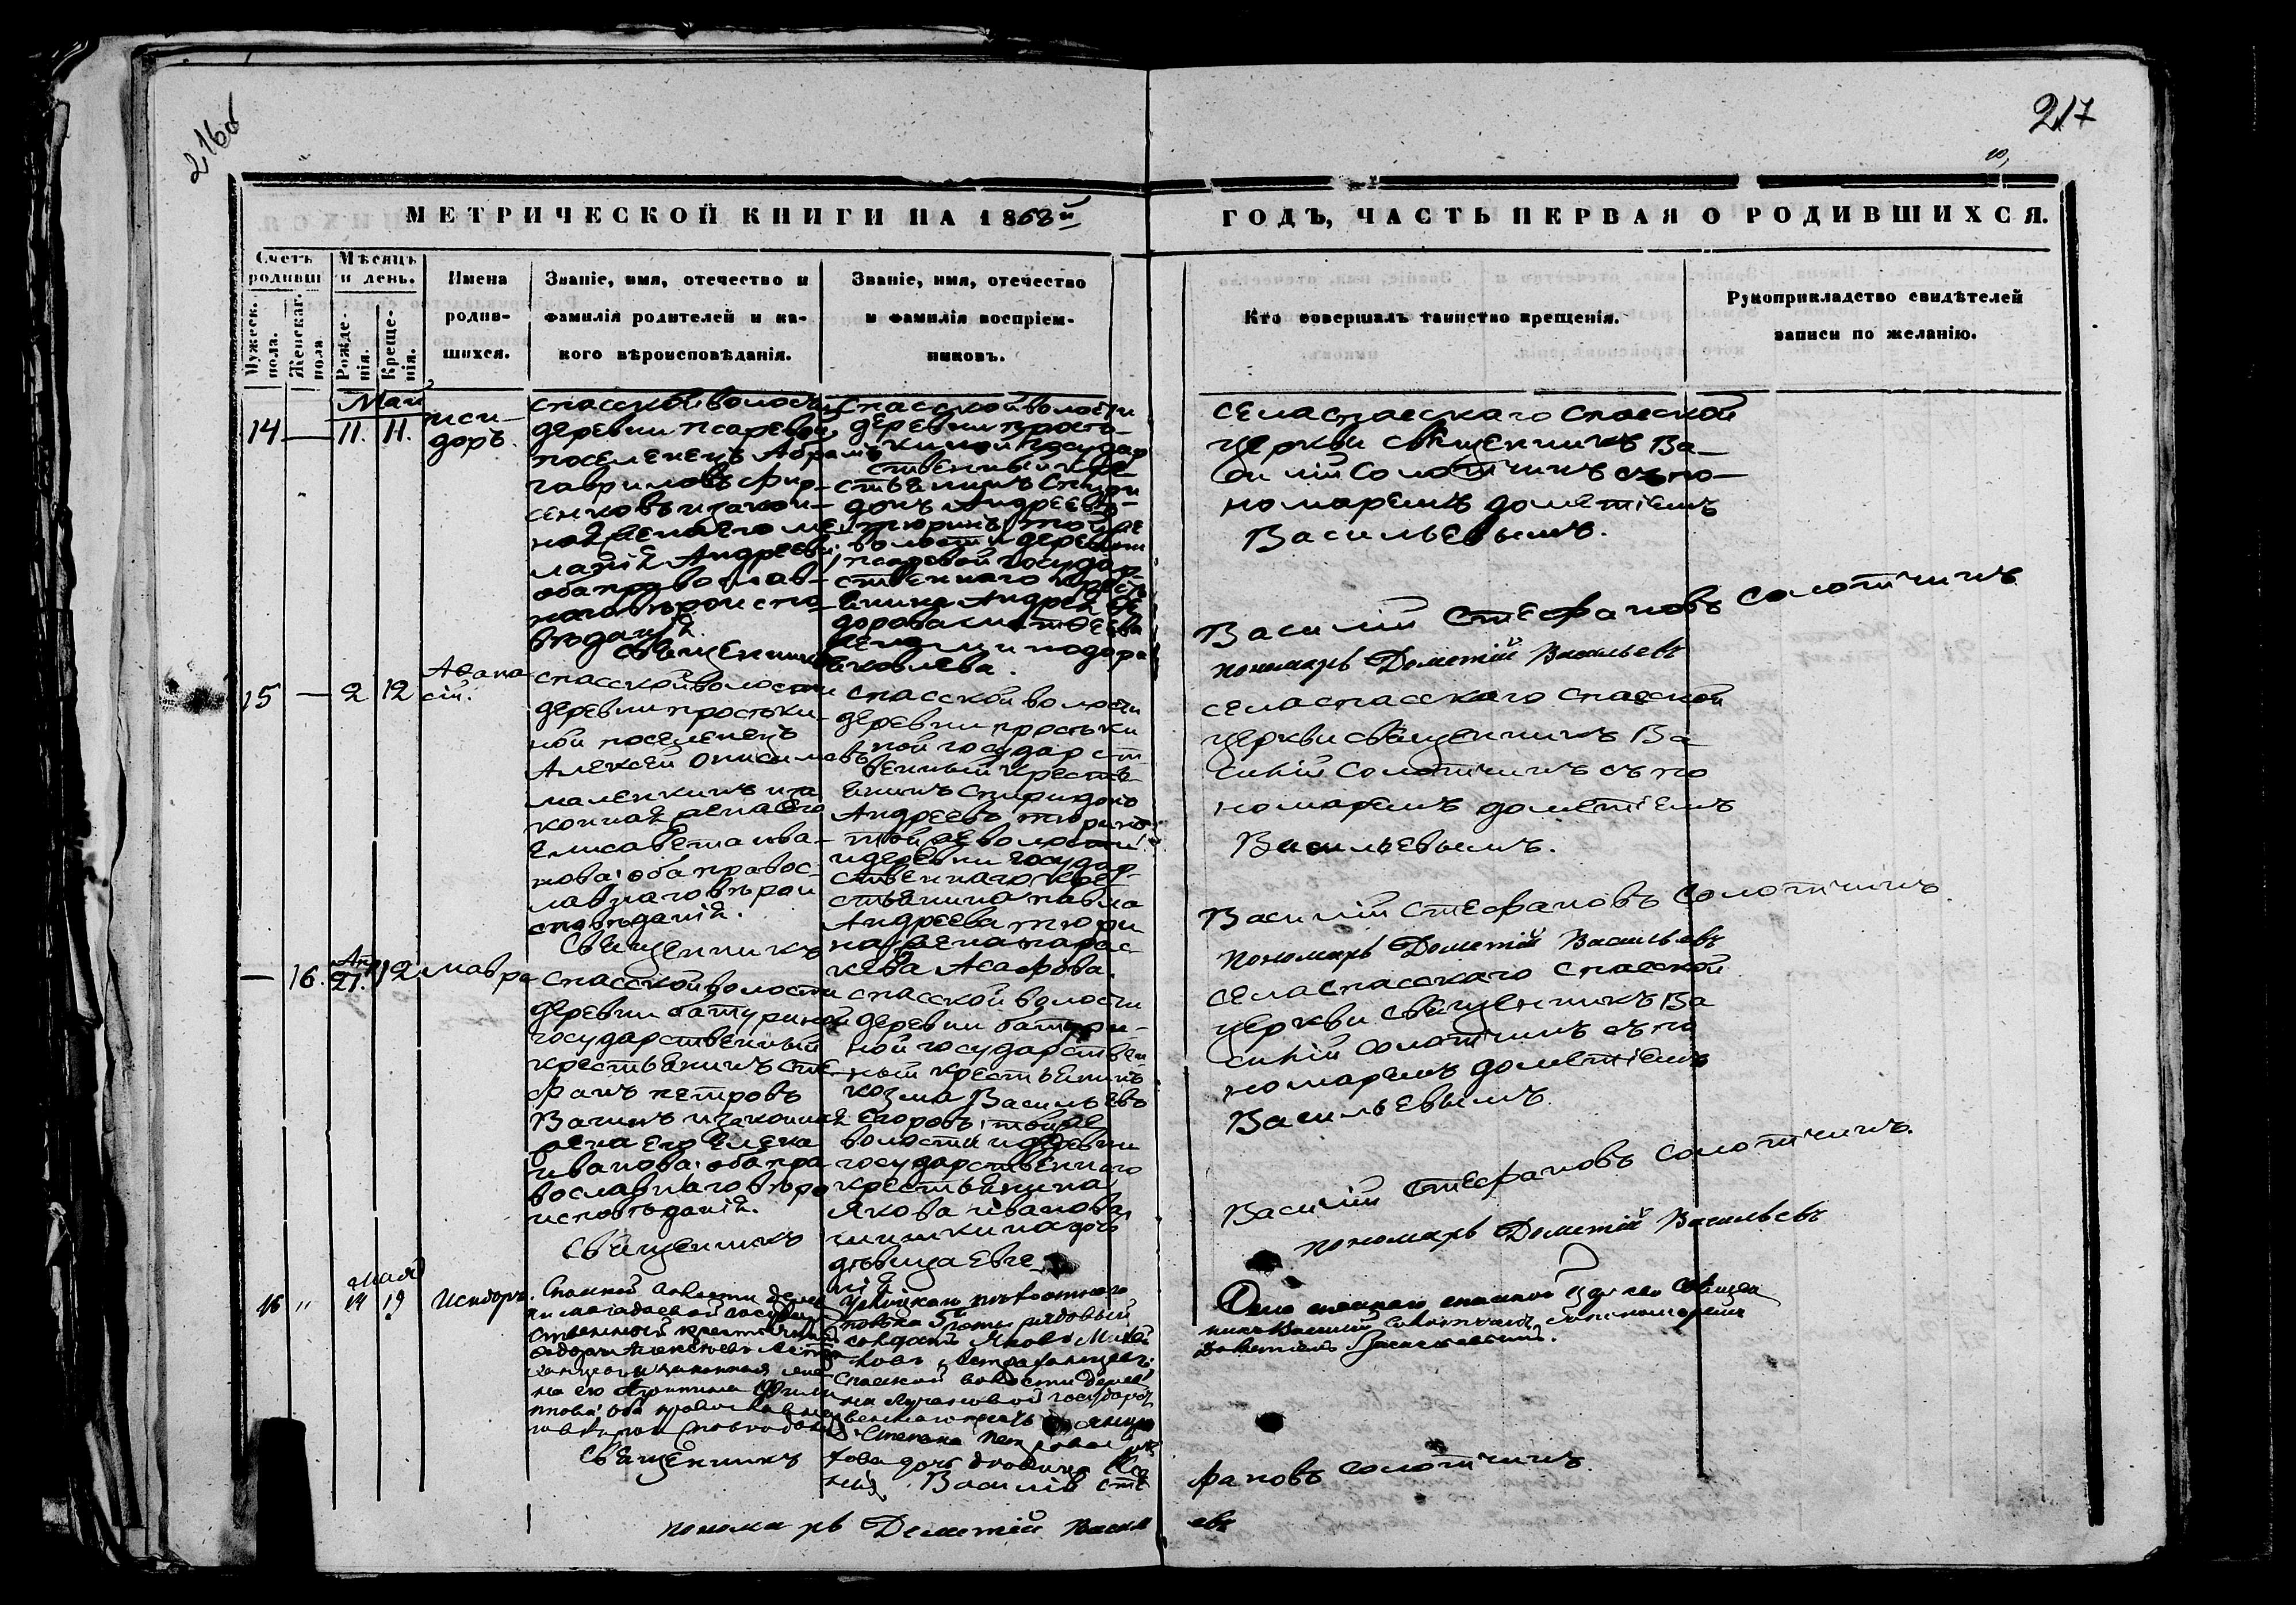 216об
217
МЕТРИЧЕСКОЙ КНИГИ НА 1868й
ГОДЪ, ЧАСТЬ ПЕРВАЯ О РОДИВШИХСЯ.
Счетъ родивш
Мѣсяцъ и день.
Мужеск. пола.
Женскаг. пола.
Рожденія.
Крещенія.
Имена
родив-
шихся.
Званіе, имя, отечество и
фамилія родителей и ка-
кого вѣроисповѣданія.
Званіе, имя, отечество
и фамилія воспріем-
никовъ.
Кто совершалъ таинство крещенія.
Рукоприкладство свидѣтелей
записи по желанію.
Май
14 — 11. 11.
иси-
доръ.
спасской волости
деревни псаревой
поселенецъ Абрамъ
гавриловъ фир-
сенковъ и закон-
ная жена его
Андреева
оба православ-
наго вѣроиспо-
вѣданія.
священникъ
спасской волости
деревни прость-
киной государ
ственный кре-
стьянинъ спири
донъ Андреевъ
тюринъ; той же
волости деревни
псаревой государ-
ственнаго кресть
янина Андрея Ѳе
дорова
жена
яковлева.
села спасскаго спасской
церкви священникъ Ва-
силій Солотчинъ съ по-
номаремъ дометіемъ
Васильевымъ.
Василій Стефановъ Солотчинъ
пономарь Дометій Васильевъ
15 — 2 12
Аѳана-
сій.
спасской волости
деревни простьки-
ной поселенецъ
Алексей Онисимовъ
маленкинъ и за
конная жена его
Елисавета ива-
нова; оба правос-
лавнаго вѣрои
сповѣданія.
Священникъ
спасской волости
деревни простьки
ной государст
венный кресть-
янинъ спиридонъ
Андреевъ тюринъ
той же волости
и деревни государ
ственнаго кре-
стьянина павла
Андреева тюри
на жена парас-
кева Асафова.
села спасскаго спасской
церкви священникъ Ва
силій Солотчинъ съ по
номаремъ дометіемъ
Васильевымъ.
Василій Стефановъ Солотчинъ
пономарь Дометій Васильевъ
— 16. Ап. 21. 12
мавра
спасской волости
деревни батуриной
государственный
крестьянинъ сте
фанъ петровъ
Вагинъ и законная
жена его Елена
иванова; оба пра
вославнаго вѣро
исповѣданія.
Священникъ
спасской волости
деревни батури-
ной государствен
ный крестьянинъ
козма Васильевъ
Егоровъ; той же
волости и деревни
государственнаго
крестьянина
Якова иванова
дочь
дѣвица Евге
нія
села спасскаго спасской
церкви священникъ Ва
силій Солотчинъ съ по
номаремъ дометіемъ
Васильевымъ
Василій Стефановъ Солотчинъ.
пономарь Дометій Васильевъ
16 " мая 14 19
Исидоръ.
Спасской волости дерев
ни магадаевой государ
ственной крестьянинъ
Алексѣевъ
и законная же
на его Филип
пова; оба православна
го вѣроисповѣданія
Священникъ
пѣхотнаго
полка роты рядовый
солдатъ Яковъ Михай
ловъ
Спасской волости дерев
ни государст
веннаго крестьянина
Степана Петрова
дочь дѣвица
Василій Сте
фановъ солотчинъ
Села спасскаго спасской церкви Священ
никъ Василій Солотчинъ съ пономаремъ
Дометіемъ Васильевымъ.
пономарь Дометій Василь
евъ